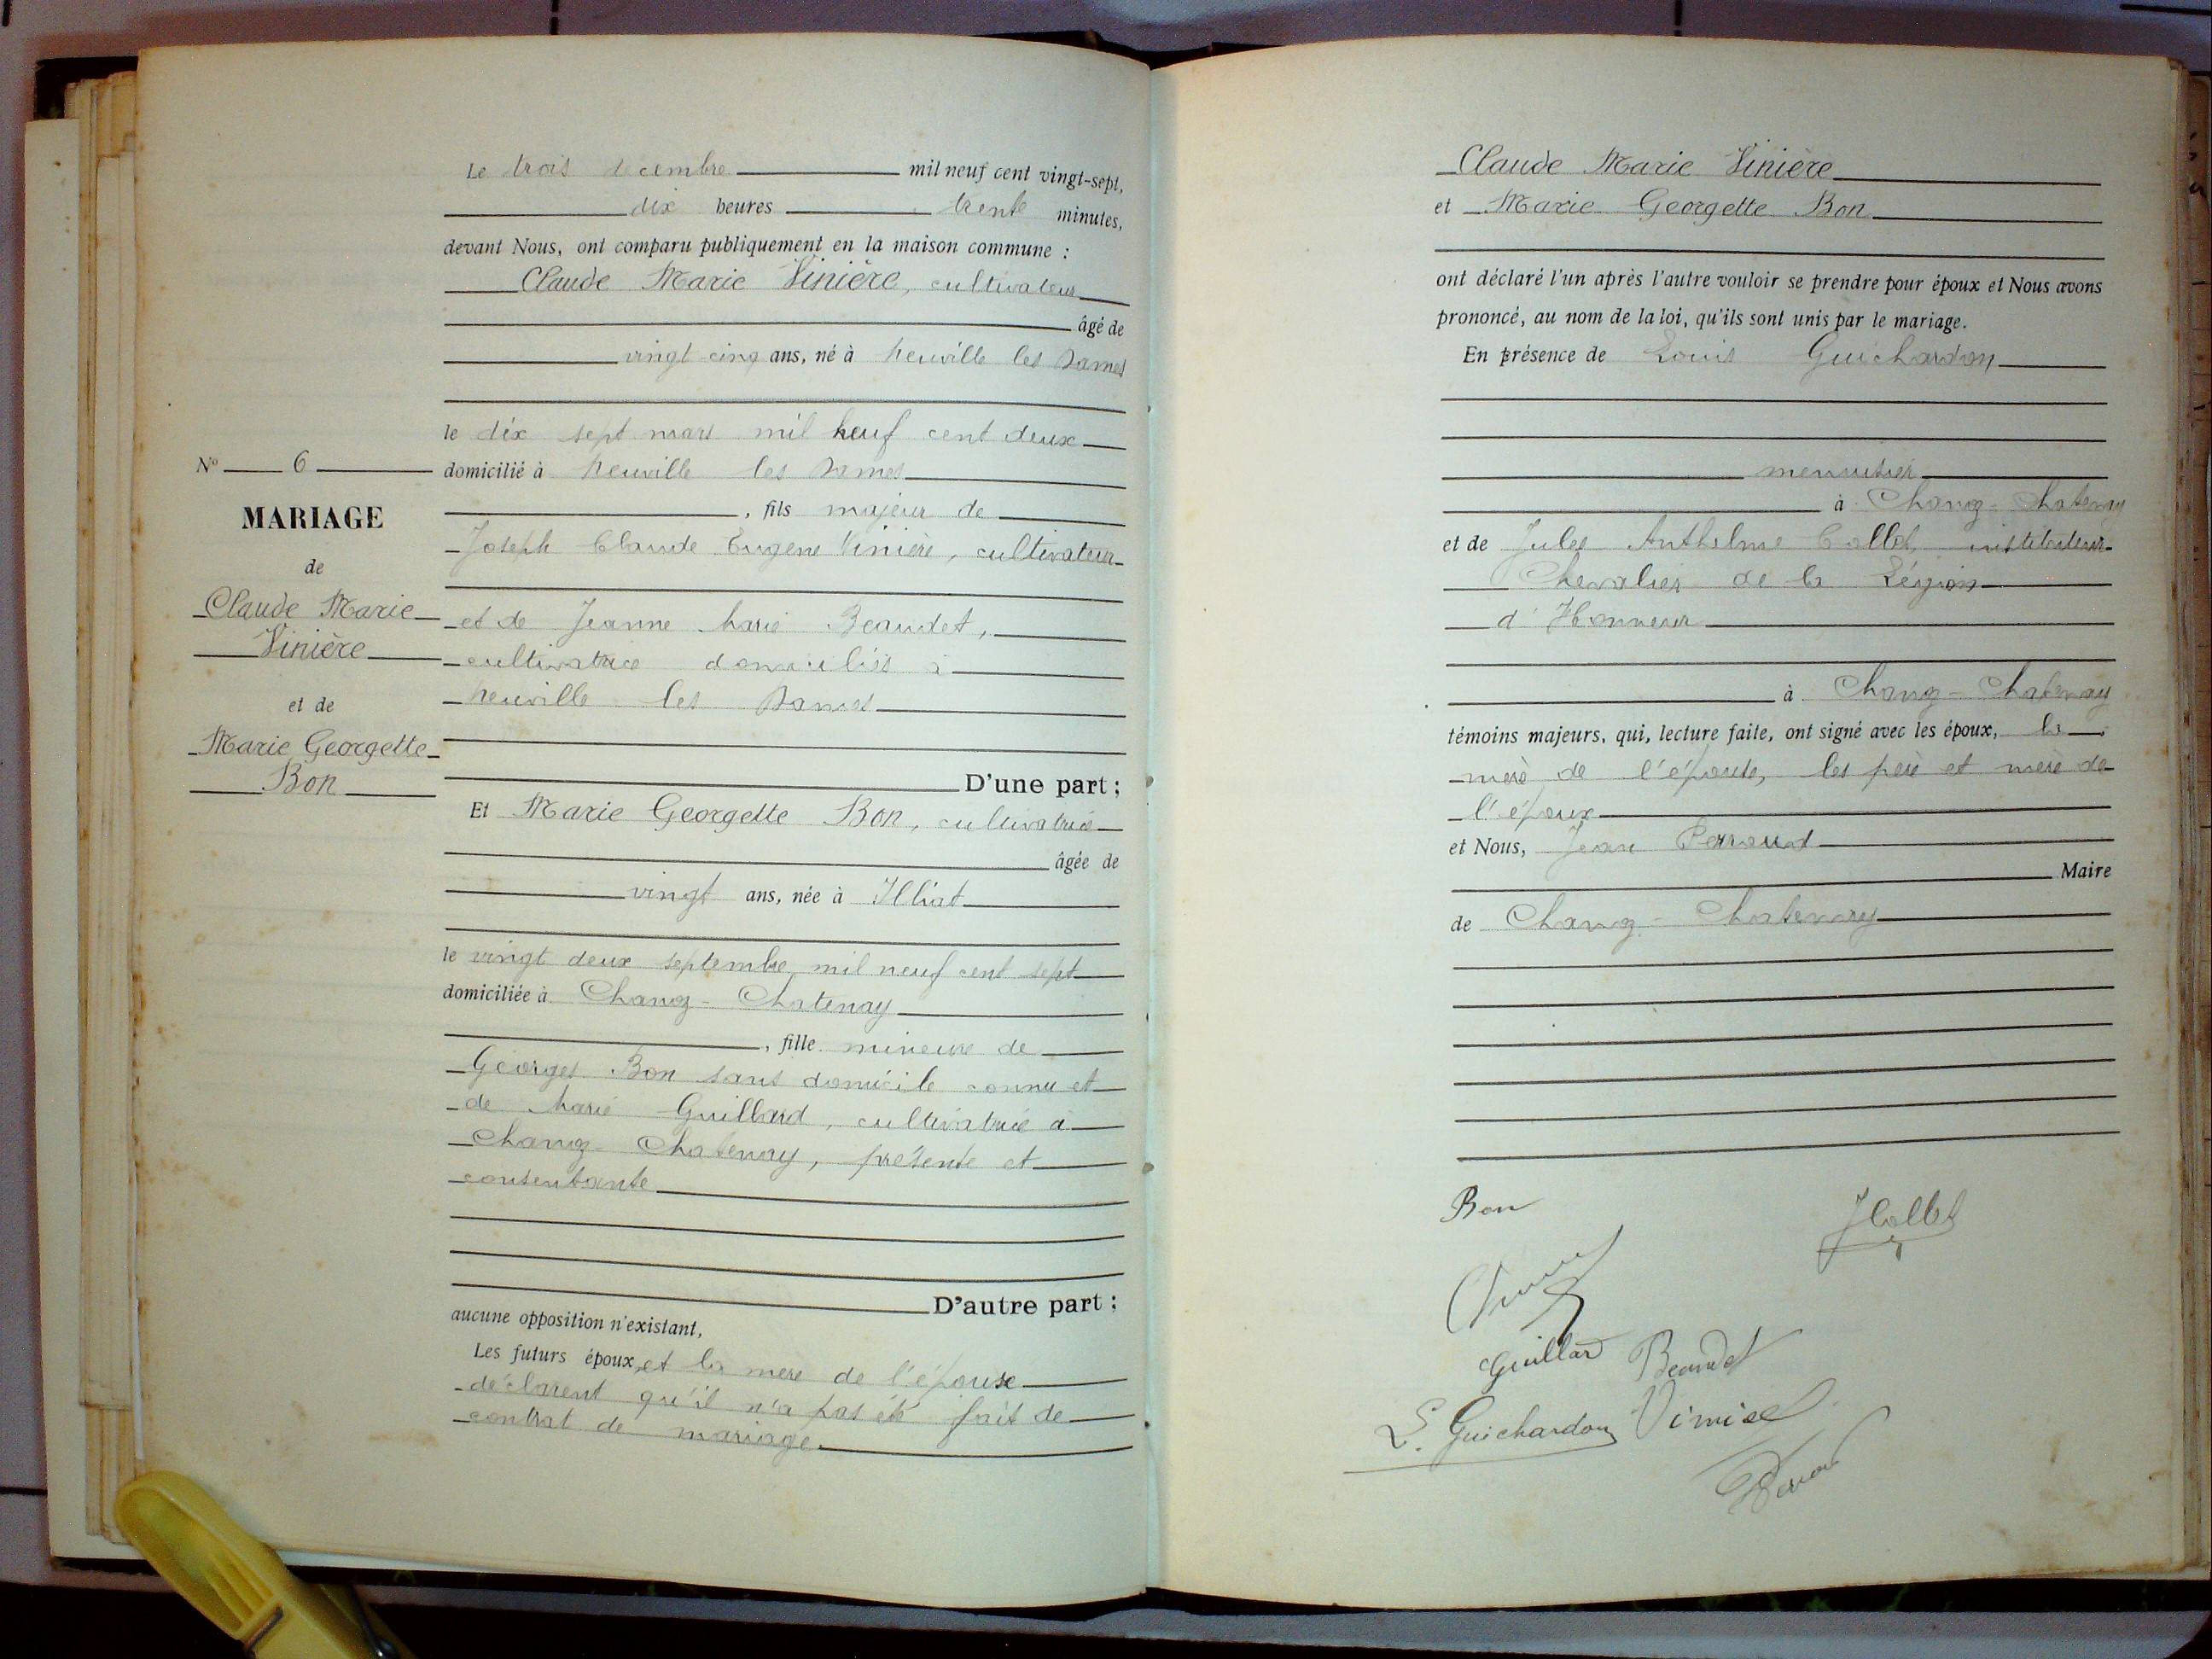 N° 6
MARIAGE
de
Claude Marie
Vinière
et de
Marie Georgette
Bon
Le trois décembre mil neuf cent vingt-sept,
dix heures trente minutes,
devant Nous, ont comparu publiquement en la maison commune :
Claude Marie Vinière, cultivateur
âgé de
vingt-cinq ans, né à Neuville les Dames
le dix sept mars mil neuf cent deux
domicilié à Neuville les Dames
, fils majeur de
Joseph Claude Eugène Vinière, cultivateur
et de Jeanne Marie Beaudet,
cultivatrice domiciliés à
Neuville les Dames
D'une part ;
Et Marie Georgette Bon, cultivatrice
âgée de
vingt ans, née à Illiat
le vingt deux septembre mil neuf cent sept
domiciliée à Chanoz-Chatenay
, fille mineure de
Georges Bon sans domicile connu et
de Marie Guillard, cultivatrice à
Chanoz-Chatenay, présente et
consentante
D'autre part ;
aucune opposition n'existant,
Les futurs époux, et la mère de l'épouse
déclarent qu'il n'a pas été fait de
contrat de mariage.
Claude Marie Vinière
et Marie Georgette Bon
ont déclaré l'un après l'autre vouloir se prendre pour époux et Nous avons
prononcé, au nom de la loi, qu'ils sont unis par le mariage.
En présence de Louis Guichardon
menuisier
à Chanoz-Chatenay
et de Jules Anthelme Collet, instituteur
Chevalier de la Légion
d'Honneur
à Chanoz-Chatenay
témoins majeurs, qui, lecture faite, ont signé avec les époux, la
mère de l'épouse, les père et mère de
l'époux
et Nous, Jean Perroud
Maire
de Chanoz-Chatenay
Bon
JCollet
Guillard Beaudet
L. Guichardon
Perroud